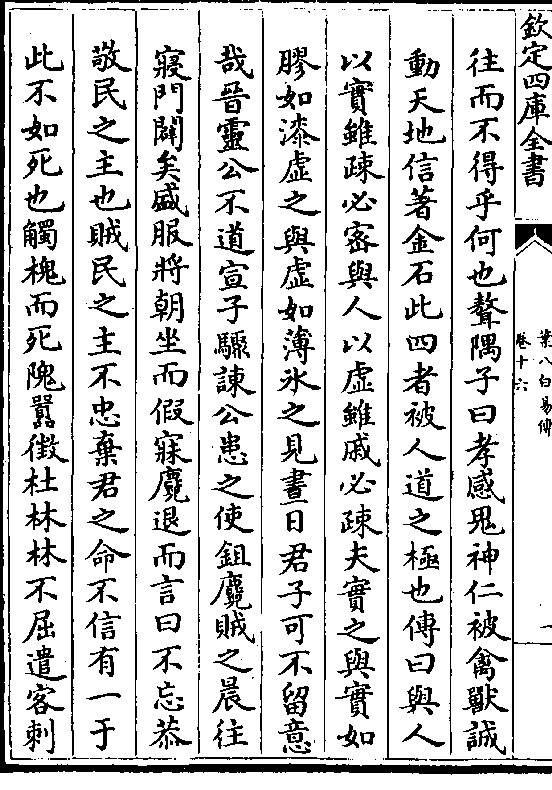 欽定四庫全書
葉八白易傳
卷十六
一
往而不得乎何也聱隅子曰孝感鬼神仁被禽獸誠
動天地信著金石此四者被人道之極也傳曰與人
以實雖疎必密與人以虛雖戚必疎夫實之與實如
膠如漆虛之與虛如薄氷之見晝日君子可不留意
哉晉靈公不道宣子驟諫公患之使鉏麑賊之晨往
寢門闢矣盛服將朝坐而假寐麑退而言曰不忘恭
敬民之主也賊民之主不忠棄君之命不信有一于
此不如死也觸槐而死隗囂徵杜林林不屈遣客刺